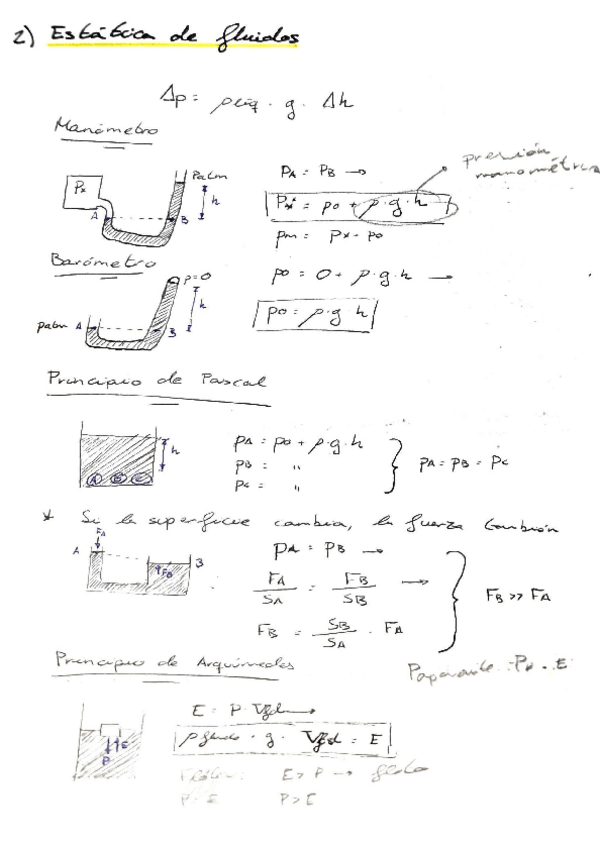 2) Estática de fluidos
Δp = ρ líq · g · Δh
Manómetro
Px
Patm
h
A
B
PA = PB →
Px = p0 + ρ·g·h
presión manométrica
pm = Px - p0
Barómetro
p=0
h
patm A
B
p0 = 0 + ρ·g·h →
p0 = ρ·g h
Principio de Pascal
h
A B C
pA = p0 + ρ·g·h
pB = "
pC = "
pA = pB = pC
* Si la superficie cambia, la fuerza también
FA
A
B
FB
pA = pB →
FA / SA = FB / SB →
FB = SB / SA · FA
FB >> FA
Principio de Arquímedes
Paparente = Pr - E
E
P
E = P · Vfd →
ρ fluido · g · Vfd = E
E > P → flota
P = E
P > E